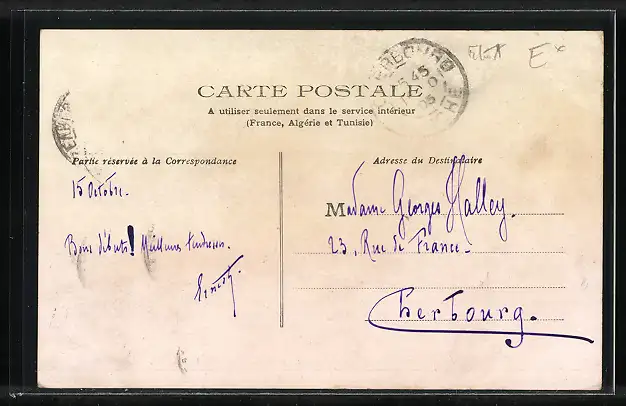 CHERBOURG
CARTE POSTALE
A utiliser seulement dans le service intérieur
(France, Algérie et Tunisie)
Partie réservée à la Correspondance
Adresse du Destinataire
15 Octobre.
Bons débuts! Meilleures tendresses.
Madame Georges Halley.
23, Rue de France.
Cherbourg.